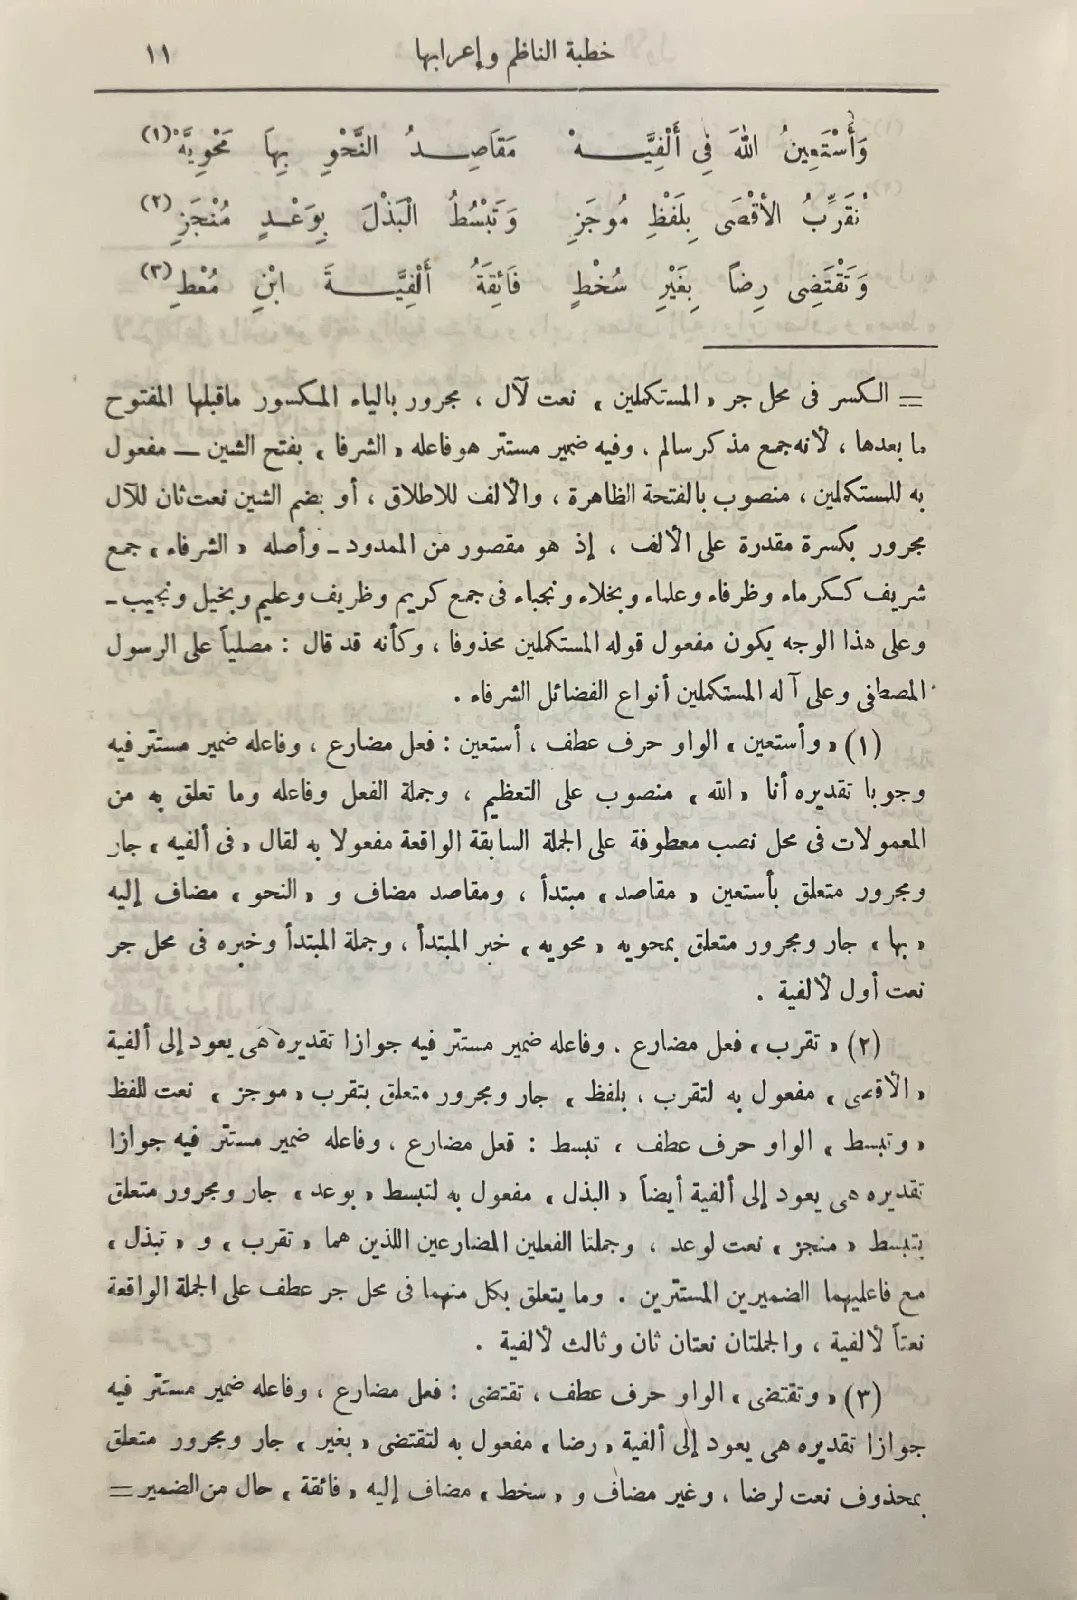 خطبة الناظم وإعرابها ١١
وَأَسْتَعِينُ اللهَ فِي أَلْفِيَّهْ مَقَاصِدُ النَّحْوِ بِهَا مَحْوِيَّهْ (١)
تُقَرِّبُ الأَقْصَى بِلَفْظٍ مُوجَزِ وَتَبْسُطُ الْبَذْلَ بِوَعْدٍ مُنْجَزِ (٢)
وَتَقْتَضِى رِضاً بِغَيْرِ سُخْطِ فَائِقَةً أَلْفِيَّةَ ابْنِ مُعْطِ (٣)
= الكسر فى محل جر « المستكملين » نعت لآل ، مجرور بالياء المكسور ماقبلها المفتوح
ما بعدها ، لأنه جمع مذكر سالم ، وفيه ضمير مستتر هو فاعله « الشرفا » بفتح الشين — مفعول
به للمستكملين ، منصوب بالفتحة الظاهرة ، والألف للاطلاق ، أو بضم الشين نعت ثان للآل
مجرور بكسرة مقدرة على الألف ، إذ هو مقصور من الممدود ـ وأصله « الشرفاء » جمع
شريف ككرماء وظرفاء وعلماء وبخلاء ونجباء فى جمع كريم وظريف وعليم وبخيل ونجيب ـ
وعلى هذا الوجه يكون مفعول قوله المستكملين محذوفا ، وكأنه قد قال : مصلياً على الرسول
المصطفى وعلى آله المستكملين أنواع الفضائل الشرفاء .
(١) « وأستعين » الواو حرف عطف ، أستعين : فعل مضارع ، وفاعله ضمير مستتر فيه
وجوبا تقديره أنا « الله » منصوب على التعظيم ، وجملة الفعل وفاعله وما تعلق به من
المعمولات فى محل نصب معطوفة على الجملة السابقة الواقعة مفعولا به لقال « فى ألفيه » جار
ومجرور متعلق بأستعين « مقاصد » مبتدأ ، ومقاصد مضاف و « النحو » مضاف إليه
« بها » جار ومجرور متعلق بمحويه « محويه » خبر المبتدأ ، وجملة المبتدأ وخبره فى محل جر
نعت أول لألفية .
(٢) « تقرب » فعل مضارع . وفاعله ضمير مستتر فيه جوازا تقديره هى يعود إلى ألفية
« الأقصى » مفعول به لتقرب ، بلفظ » جار ومجرور متعلق بتقرب « موجز » نعت للفظ
« وتبسط » الواو حرف عطف ، تبسط : فعل مضارع ، وفاعله ضمير مستتر فيه جوازا
تقديره هى يعود إلى ألفية أيضاً « البذل » مفعول به لتبسط « بوعد » جار ومجرور متعلق
بتبسط « منجز » نعت لوعد ، وجملتا الفعلين المضارعين اللذين هما « تقرب » و « تبذل »
مع فاعليهما الضميرين المستترين . وما يتعلق بكل منهما فى محل جر عطف على الجملة الواقعة
نعتاً لألفية ، والجملتان نعتان ثان وثالث لألفية .
(٣) « وتقتضى » الواو حرف عطف ، تقتضى : فعل مضارع ، وفاعله ضمير مستتر فيه
جوازا تقديره هى يعود إلى ألفية « رضا » مفعول به لتقتضى « بغير » جار ومجرور متعلق
بمحذوف نعت لرضا ، وغير مضاف و « سخط » مضاف إليه « فائقة » حال من الضمير =